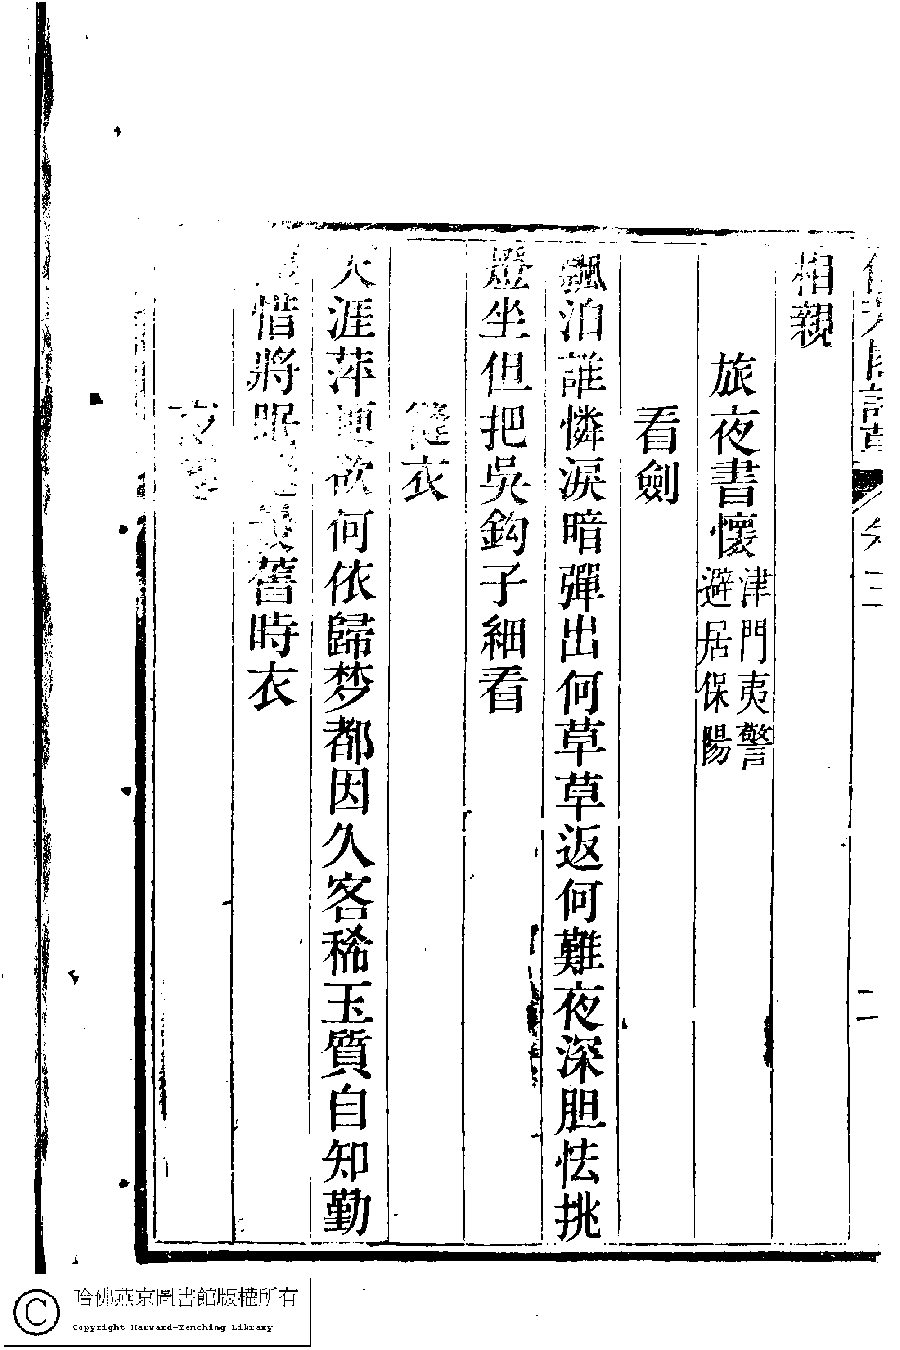 相親
旅夜書懷津門夷警避居保陽
看劍
飄泊誰憐淚暗彈出何草草返何難夜深胆怯挑
燈坐但把吳鈎子細看
縫衣
天涯萍梗欲何依歸梦都因久客稀玉質自知勤
惜將眠義舊時衣
二
哈佛燕京圖書館版權所有
Copyright Harvard-Yenching Library